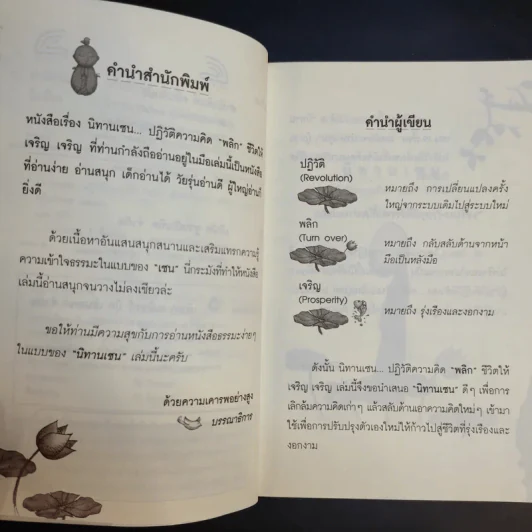 คำนำสำนักพิมพ์
หนังสือเรื่อง นิทานเซน... ปฏิวัติความคิด "พลิก" ชีวิตให้
เจริญ เจริญ ที่ท่านกำลังถืออ่านอยู่ในมือเล่มนี้เป็นหนังสือ
ที่อ่านง่าย อ่านสนุก เด็กอ่านได้ วัยรุ่นอ่านดี ผู้ใหญ่อ่าน
ยิ่งดี
ด้วยเนื้อหาอันแสนสนุกสนานและเสริมแทรกความรู้
ความเข้าใจธรรมะในแบบของ "เซน" นี่กระมังที่ทำให้หนังสือ
เล่มนี้อ่านสนุกจนวางไม่ลงเชียวล่ะ
ขอให้ท่านมีความสุขกับการอ่านหนังสือธรรมะง่ายๆ
ในแบบของ "นิทานเซน" เล่มนี้นะครับ
ด้วยความเคารพอย่างสูง
บรรณาธิการ
คำนำผู้เขียน
ปฏิวัติ
(Revolution)
หมายถึง การเปลี่ยนแปลงครั้ง
ใหญ่จากระบบเดิมไปสู่ระบบใหม่
พลิก
(Turn over)
หมายถึง กลับสลับด้านจากหน้า
มือเป็นหลังมือ
เจริญ
(Prosperity)
หมายถึง รุ่งเรืองและงอกงาม
ดังนั้น นิทานเซน... ปฏิวัติความคิด "พลิก" ชีวิตให้
เจริญ เจริญ เล่มนี้จึงขอนำเสนอ "นิทานเซน" ดีๆ เพื่อการ
เลิกล้มความคิดเก่าๆ แล้วสลับด้านเอาความคิดใหม่ๆ เข้ามา
ใช้เพื่อการปรับปรุงตัวเองใหม่ให้ก้าวไปสู่ชีวิตที่รุ่งเรืองและ
งอกงาม